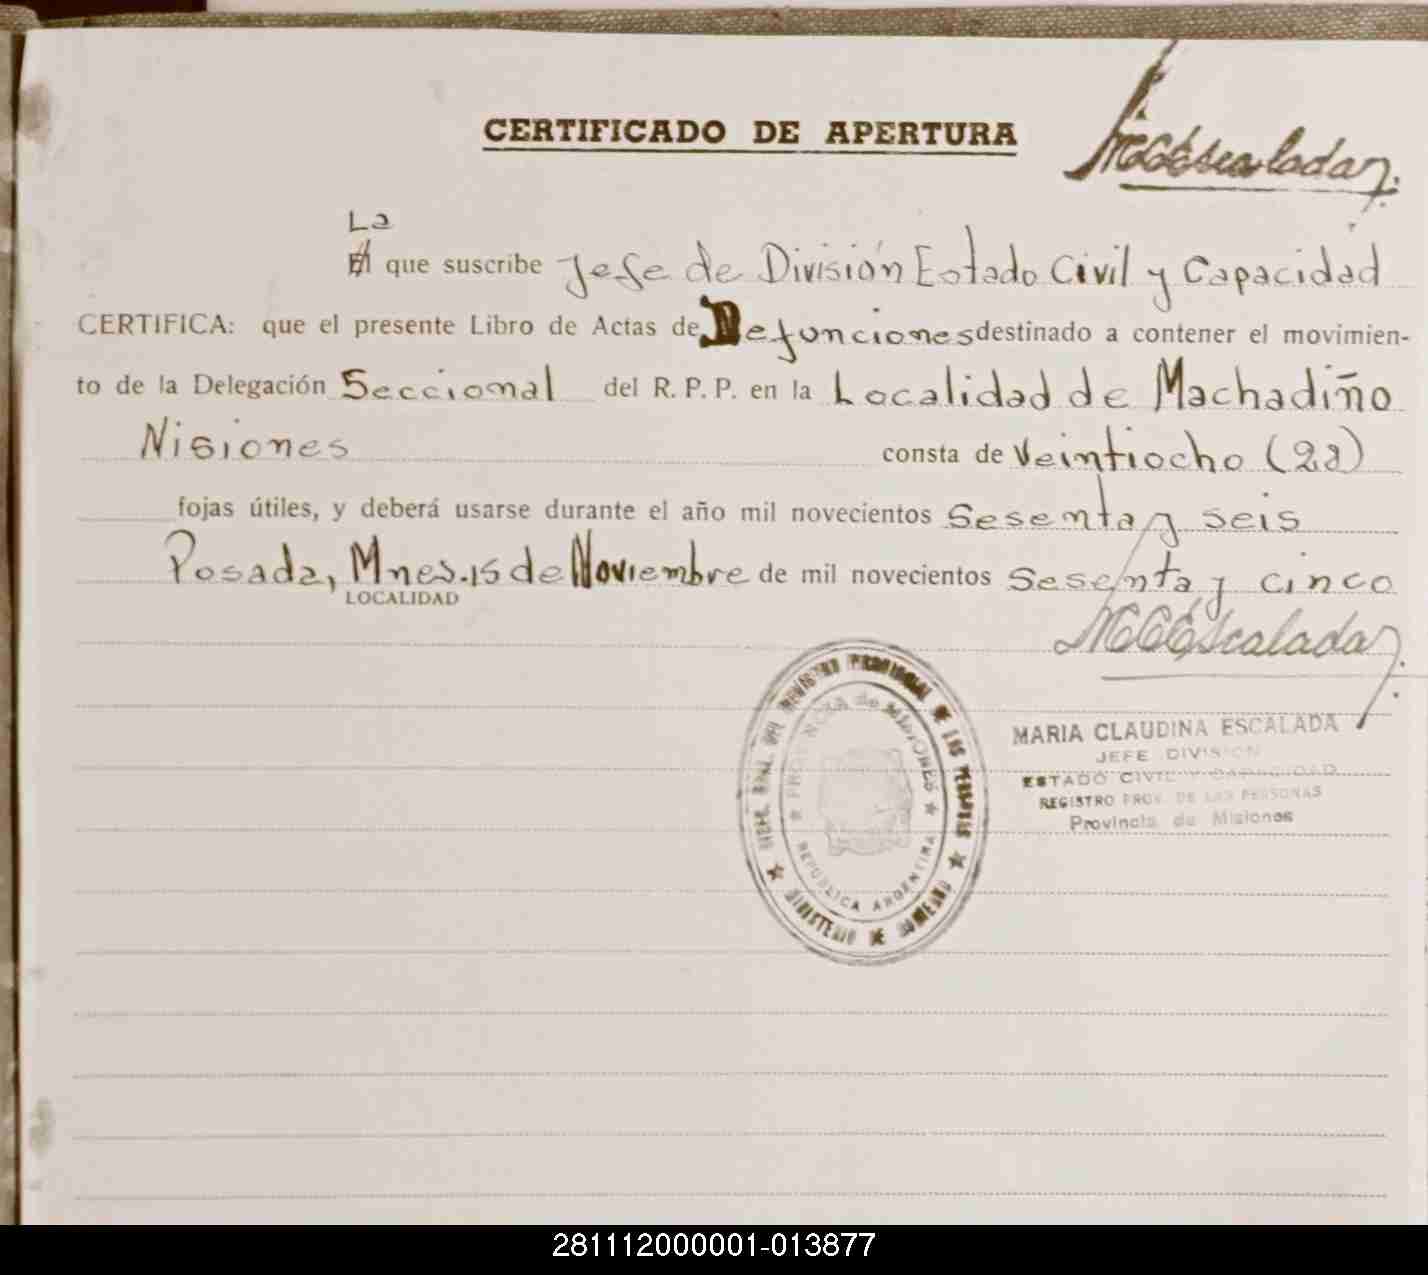 CERTIFICADO DE APERTURA
MCCEscalada
La
El que suscribe Jefe de División Estado Civil y Capacidad
CERTIFICA: que el presente Libro de Actas de Defunciones destinado a contener el movimien-
to de la Delegación Seccional del R. P. P. en la Localidad de Machadiño
Misiones consta de Veintiocho (28)
fojas útiles, y deberá usarse durante el año mil novecientos Sesenta y seis
Posada, Mnes. 15 de Noviembre de mil novecientos Sesenta y cinco
LOCALIDAD
MCCEscalada
REGISTRO PROVINCIAL DE LAS PERSONAS
PROVINCIA de MISIONES
REPUBLICA ARGENTINA
MINISTERIO DE GOBIERNO
MARIA CLAUDINA ESCALADA
JEFE DIVISION
ESTADO CIVIL Y CAPACIDAD
REGISTRO PROV. DE LAS PERSONAS
Provincia de Misiones
281112000001-013877